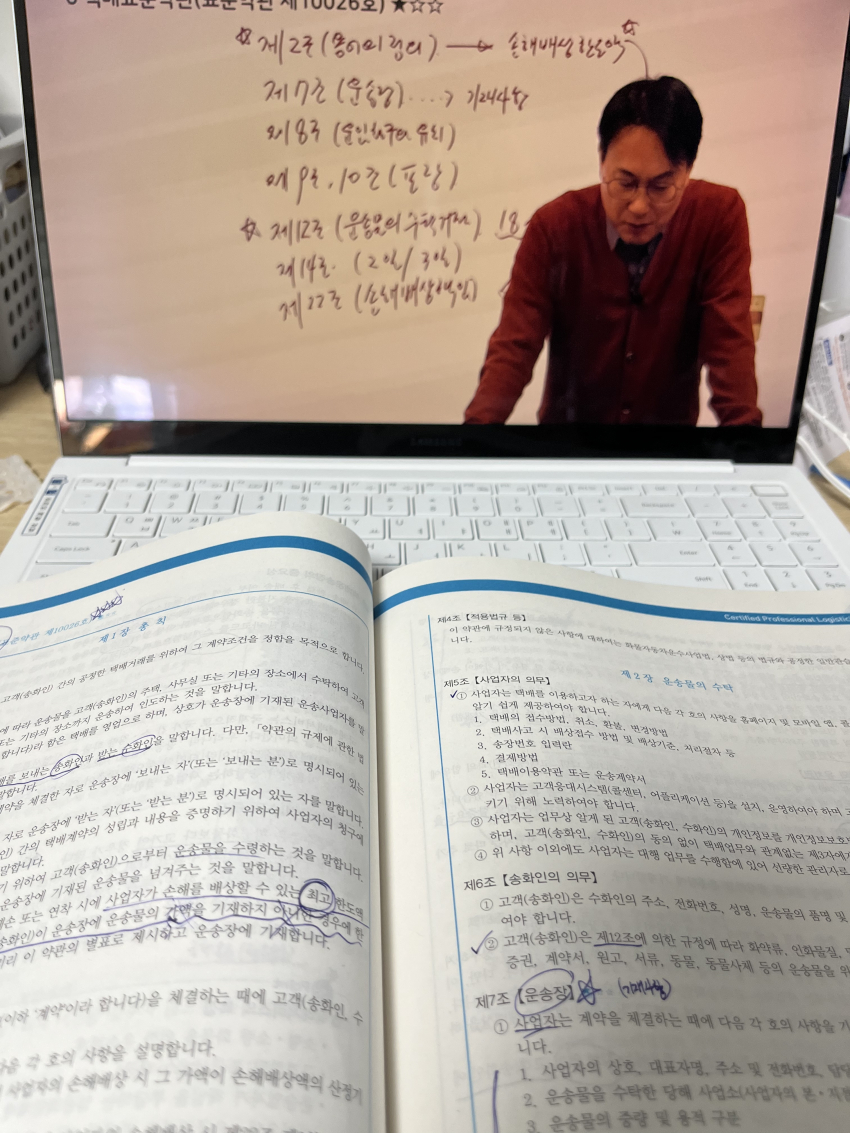 택배표준약관(표준약관 제10026호) ★☆☆
☆ 제2조 (용어의 정의) → 손해배상한도액 ☆
제7조 (운송장) ....> 기재사항
제8조 (운임청구와 유치)
제9조, 10조 (포장)
☆ 제12조 (운송물의 수탁거절) 18
제14조 (2일/3일)
제22조 (손해배상책임)
SAMSUNG
준약관 제10026호
제1장 총 칙
고객(송화인) 간의 공정한 택배거래를 위하여 그 계약조건을 정함을 목적으로 합니다.
에 따라 운송물을 고객(송화인)의 주택, 사무실 또는 기타의 장소에서 수탁하여 고객
또는 기타의 장소까지 운송하여 인도하는 것을 말합니다.
합니다)라 함은 택배를 영업으로 하며, 상호가 운송장에 기재된 운송사업자를 말
를 보내는 송화인과 받는 수화인을 말합니다. 다만, 「약관의 규제에 관한 법
계약을 체결한 자로 운송장에 '보내는 자'(또는 '보내는 분')로 명시되어 있는
자로 운송장에 '받는 자'(또는 '받는 분')로 명시되어 있는 자를 말합니다.
인) 간의 택배계약의 성립과 내용을 증명하기 위하여 사업자의 청구에
말합니다.
기 위하여 고객(송화인)으로부터 운송물을 수령하는 것을 말합니다.
운송장에 기재된 운송물을 넘겨주는 것을 말합니다.
훼손 또는 연착 시에 사업자가 손해를 배상할 수 있는 최고한도액
송화인)이 운송장에 운송물의 가액을 기재하지 아니한 경우에 한
이 약관의 별표로 제시하고 운송장에 기재합니다.
이하 '계약'이라 합니다)을 체결하는 때에 고객(송화인, 수
다음 각 호의 사항을 설명합니다.
사업자의 손해배상 시 그 가액이 손해배상액의 산정기
Certified Professional Logistic
제4조 【적용법규 등】
이 약관에 규정되지 않은 사항에 대하여는 화물자동차운수사업법, 상법 등의 법규와 공정한 일반관습
니다.
제2장 운송물의 수탁
제5조 【사업자의 의무】
① 사업자는 택배를 이용하고자 하는 자에게 다음 각 호의 사항을 홈페이지 및 모바일 앱, 콜
알기 쉽게 제공하여야 합니다.
1. 택배의 접수방법, 취소, 환불, 변경방법
2. 택배사고 시 배상접수 방법 및 배상기준, 처리절차 등
3. 송장번호 입력란
4. 결제방법
5. 택배이용약관 또는 운송계약서
② 사업자는 고객응대시스템(콜센터, 어플리케이션 등)을 설치, 운영하여야 하며
키기 위해 노력하여야 합니다.
③ 사업자는 업무상 알게 된 고객(송화인, 수화인)의 개인정보를 개인정보보호
하며, 고객(송화인, 수화인)의 동의 없이 택배업무와 관계없는 제3자에
④ 위 사항 이외에도 사업자는 대행 업무를 수행함에 있어 선량한 관리자로
제6조 【송화인의 의무】
① 고객(송화인)은 수화인의 주소, 전화번호, 성명, 운송물의 품명 및
여야 합니다.
② 고객(송화인)은 제12조에 의한 규정에 따라 화약류, 인화물질,
증권, 계약서, 원고, 서류, 동물, 동물사체 등의 운송물을 위
제7조 【운송장】 ☆ (기재사항)
① 사업자는 계약을 체결하는 때에 다음 각 호의 사항을 기
니다.
1. 사업자의 상호, 대표자명, 주소 및 전화번호, 담당
2. 운송물을 수탁한 당해 사업소(사업자의 본·지점
3. 운송물의 중량 및 용적 구분